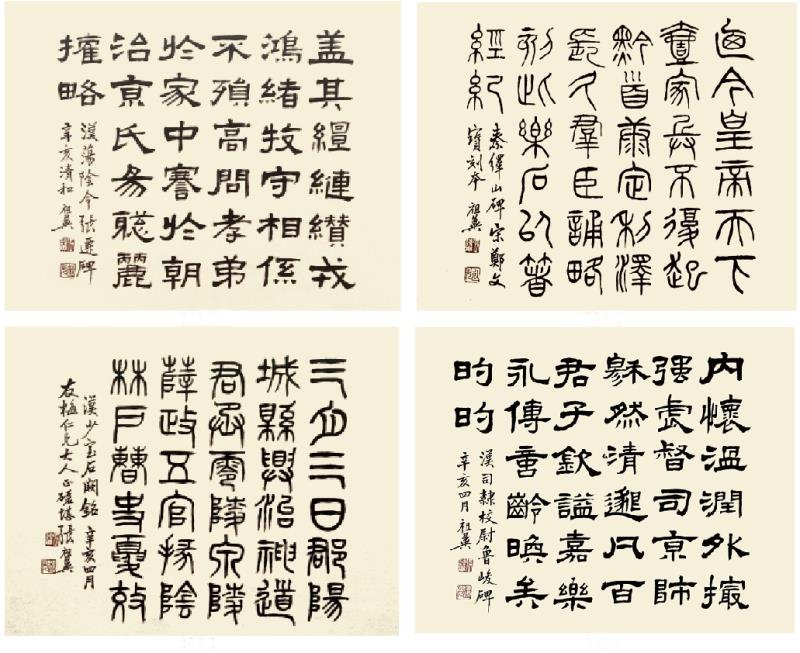 盖其繵縺纘戎
鴻緒牧守相係
不殞高問孝弟
於家中謇於朝
治京氏易聡麗
攉略
漢蕩陰令張遷碑
辛亥清和 祖翼
迺今皇帝天下
壹家兵不復起
黔首康定利澤
長久群臣誦略
刻此樂石以著
經紀
秦繹山碑宋鄭文
寶刻本 祖翼
三月三日郡陽
城縣興治神道
君丞零陵泉陵
薛政五官掾陰
林戶曹史夏效
漢少室石闕銘 辛亥四月
友梅仁兄大人正 磊盦張祖翼
內懷温潤外撮
强虐督司京師
穆然清邈凡百
君子欽謚嘉樂
永傳啻齡晚矣
旳旳
漢司隸校尉魯峻碑
辛亥四月 祖翼